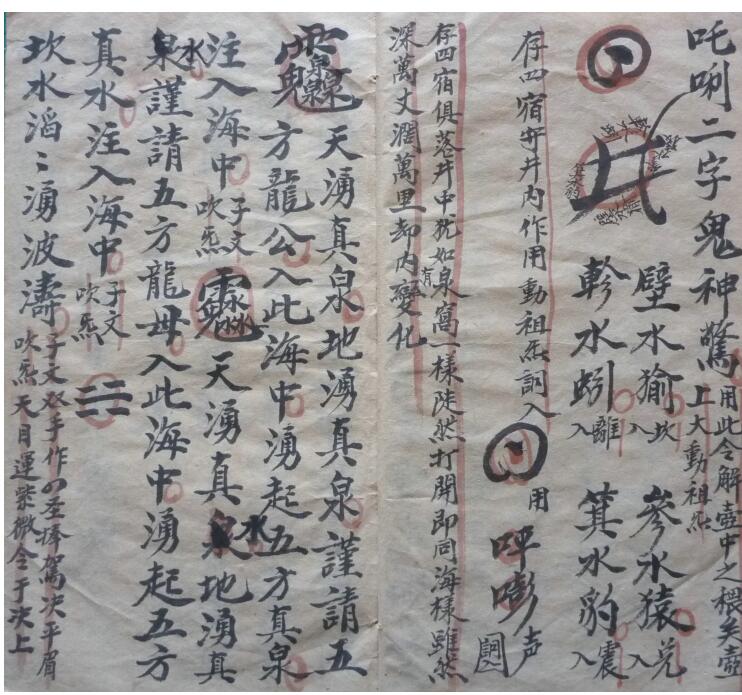 吒唎二字鬼神驚用此令解壺中之穢矣壺
上大動祖炁
壁水㺄入坎 參水猿入兌
軫水蚓入離 箕水豹入震
存四宿弁井內作用動祖炁訶入用
呼嘭声
存四宿俱落井中犹如泉窩一樣陡然打開即同海樣雖然
深萬丈濶萬里却內有變化
天湧真泉地湧真泉謹請五
方龍公入此海中湧起五方真泉
注入海中子文吹炁 天湧真水地湧真
泉水謹請五方龍母入此海中湧起五方
真水注入海中子文吹炁
坎水滔滔湧波濤子文双手作
吹炁天目運紫微令于決上